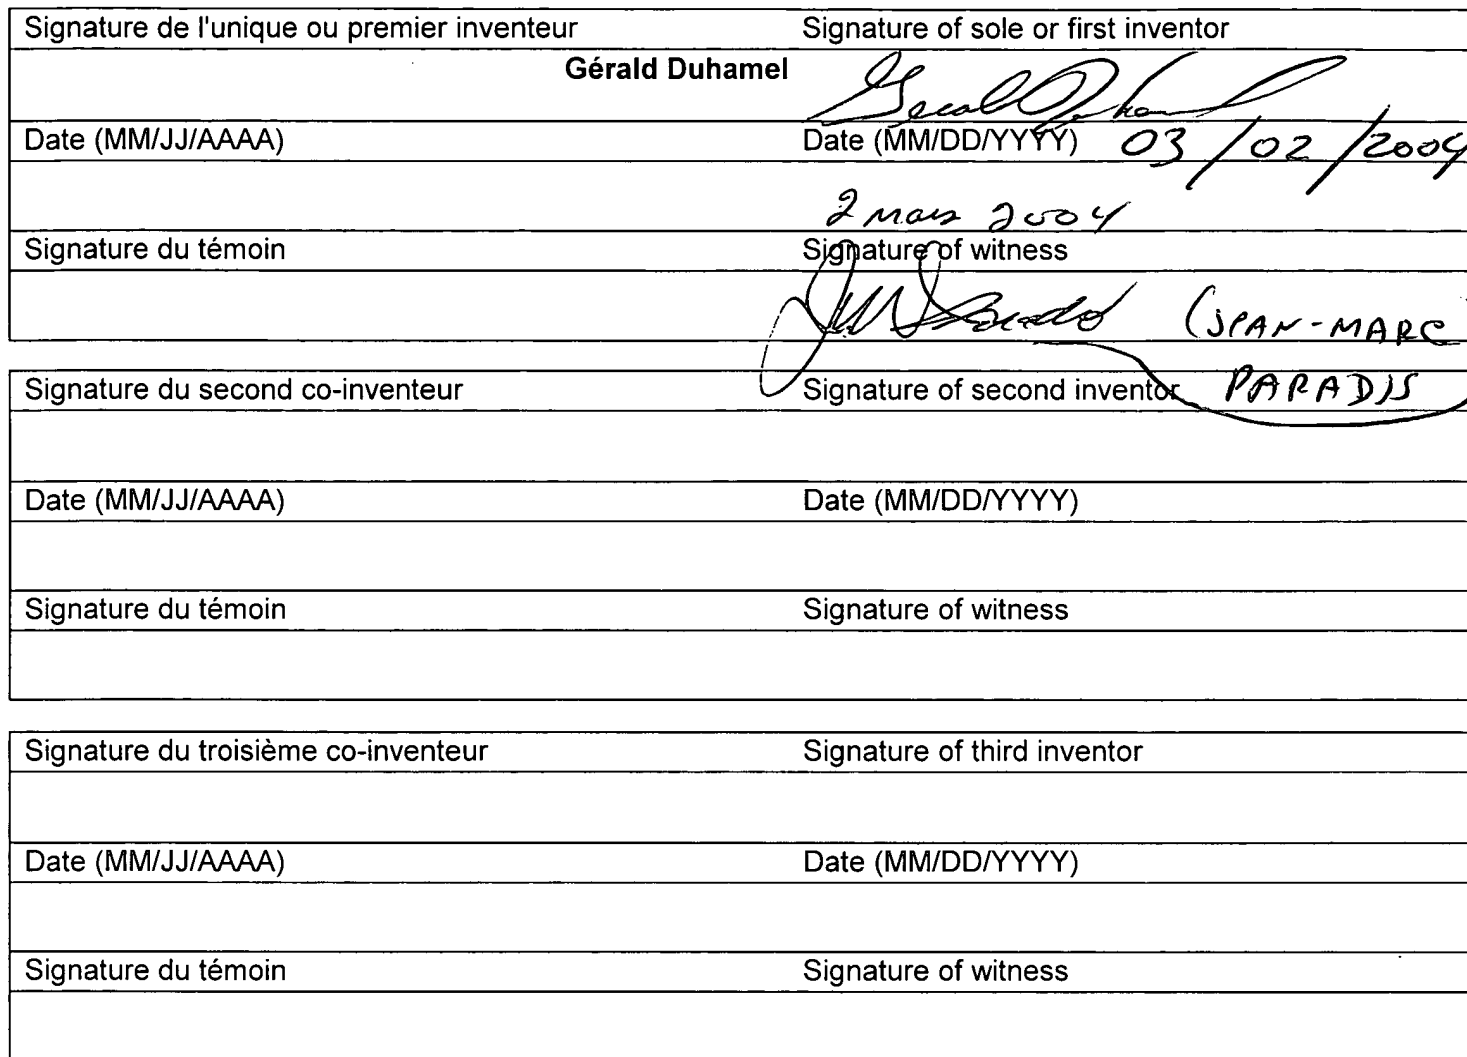 Signature de l'unique ou premier inventeur Signature of sole or first inventor
Gérald Duhamel Gerald Duhamel
Date (MM/JJ/AAAA) Date (MM/DD/YYYY) 03/02/2004
2 mars 2004
Signature du témoin Signature of witness
(JEAN-MARC
PARADIS
Signature du second co-inventeur Signature of second inventor
Date (MM/JJ/AAAA) Date (MM/DD/YYYY)
Signature du témoin Signature of witness
Signature du troisième co-inventeur Signature of third inventor
Date (MM/JJ/AAAA) Date (MM/DD/YYYY)
Signature du témoin Signature of witness